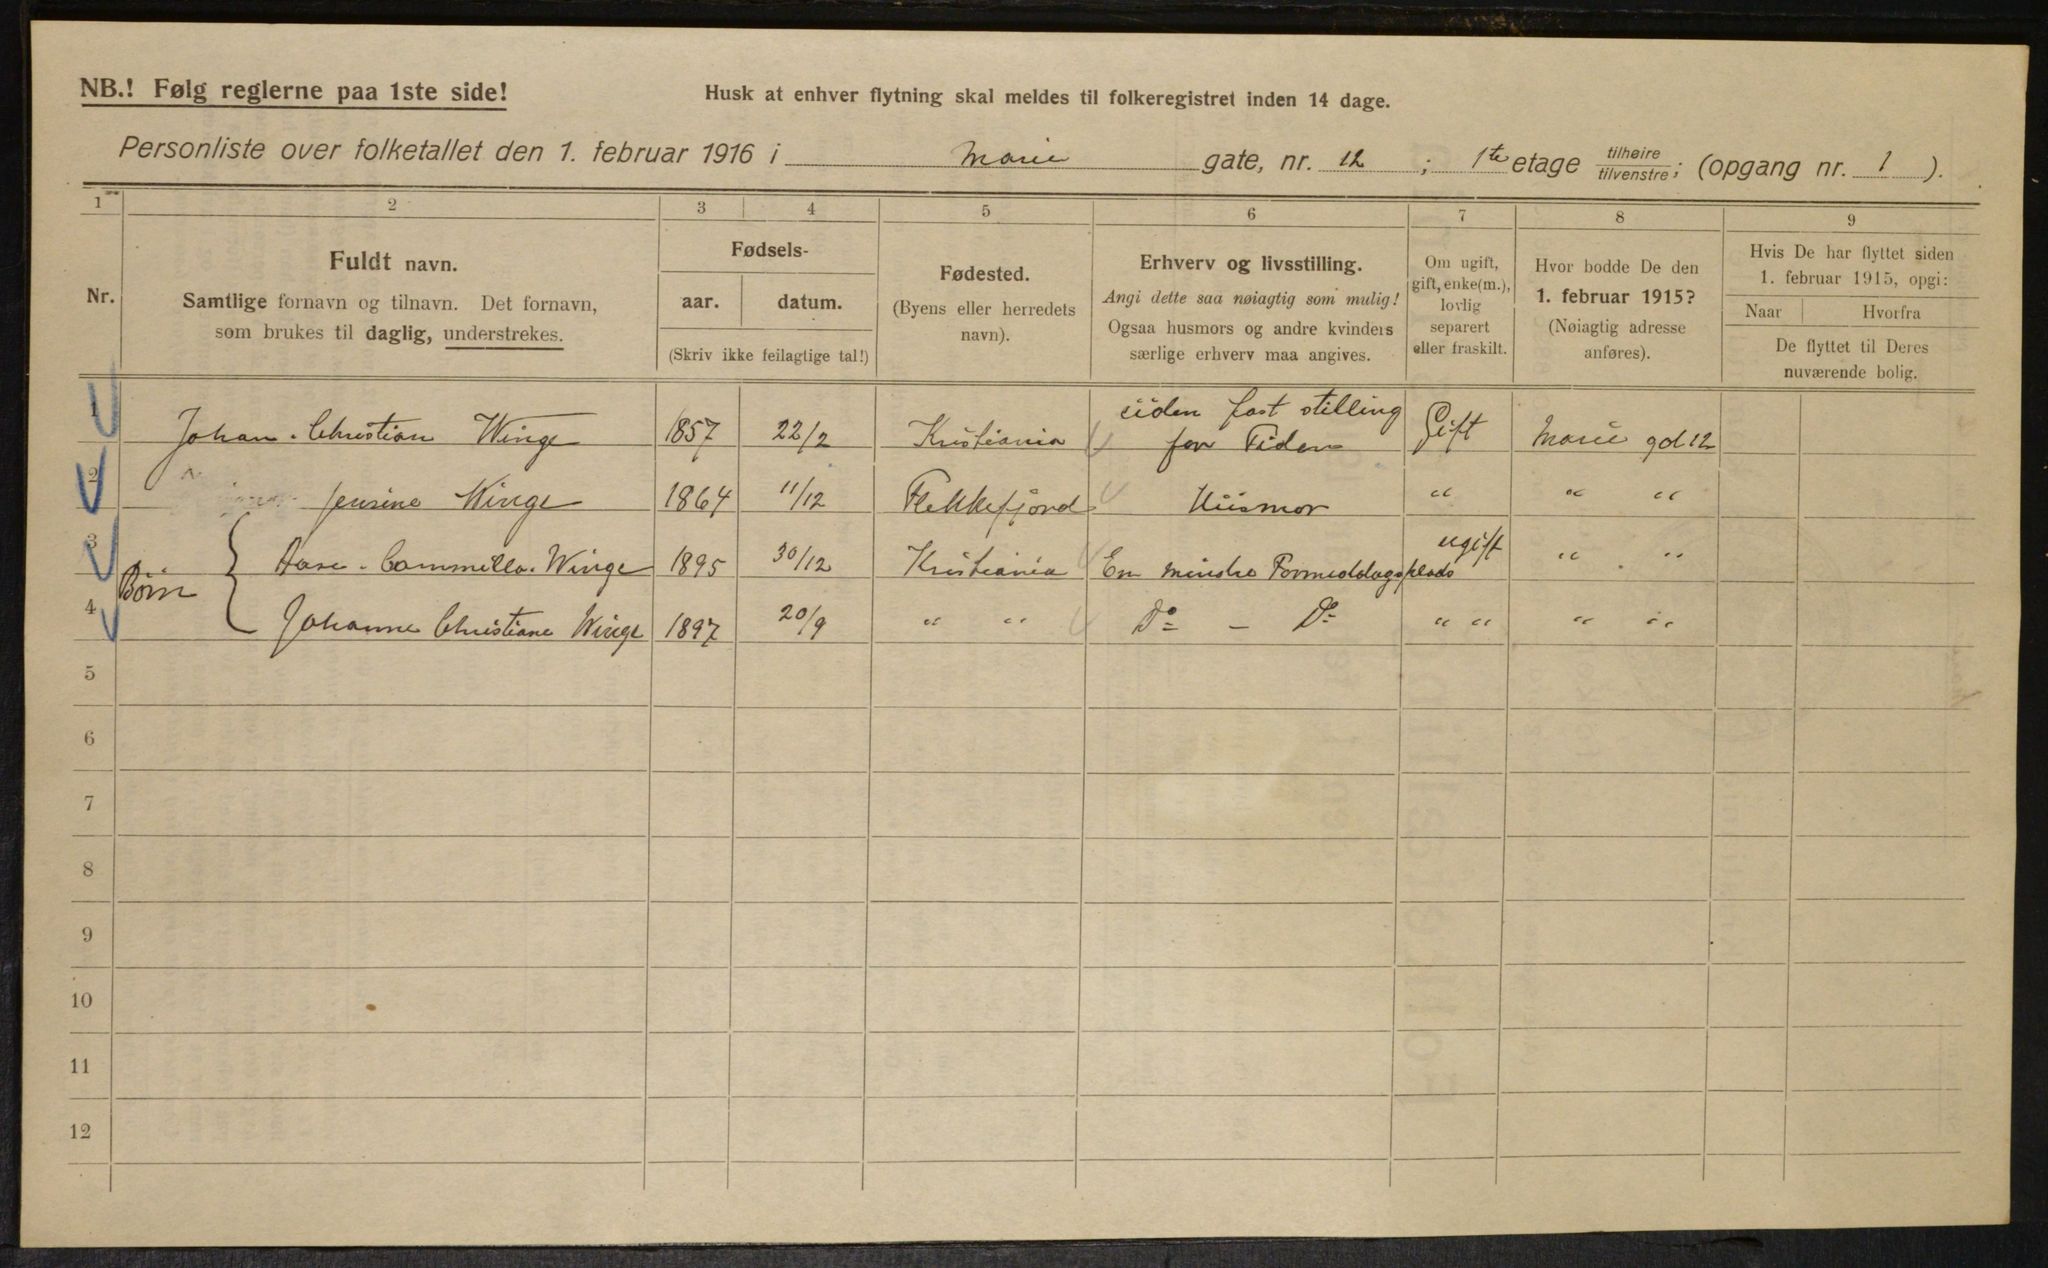 NB.! Følg reglerne paa 1ste side!
Husk at enhver flytning skal meldes til folkeregistret inden 14 dage.
Personliste over folketallet den 1. februar 1916 i Marie gate, nr. 12 ; 1ste etage tilhøire/tilvenstre; (opgang nr. 1 ).
1 2 3 4 5 6 7 8 9
Nr.
Fuldt navn.
Samtlige fornavn og tilnavn. Det fornavn,
som brukes til daglig, understrekes.
Fødsels-
aar. datum.
(Skriv ikke feilagtige tal!)
Fødested.
(Byens eller herredets
navn).
Erhverv og livsstilling.
Angi dette saa nøiagtig som mulig!
Ogsaa husmors og andre kvinders
særlige erhverv maa angives.
Om ugift,
gift, enke(m.),
lovlig
separert
eller fraskilt.
Hvor bodde De den
1. februar 1915?
(Nøiagtig adresse
anføres).
Hvis De har flyttet siden
1. februar 1915, opgi:
Naar Hvorfra
De flyttet til Deres
nuværende bolig.
1 Johan Christian Winge 1857 22/2 Kristiania uden fast stilling for Tiden Gift Marie gd 12
2 Jensine Winge 1864 11/12 Flekkefjord Husmor " " "
Børn
3 Aase Cammilla Winge 1895 30/12 Kristiania En mindre Formiddagsplads ugift " "
4 Johanne Christiane Winge 1897 20/9 " " Do - Do " " " "
5
6
7
8
9
10
11
12